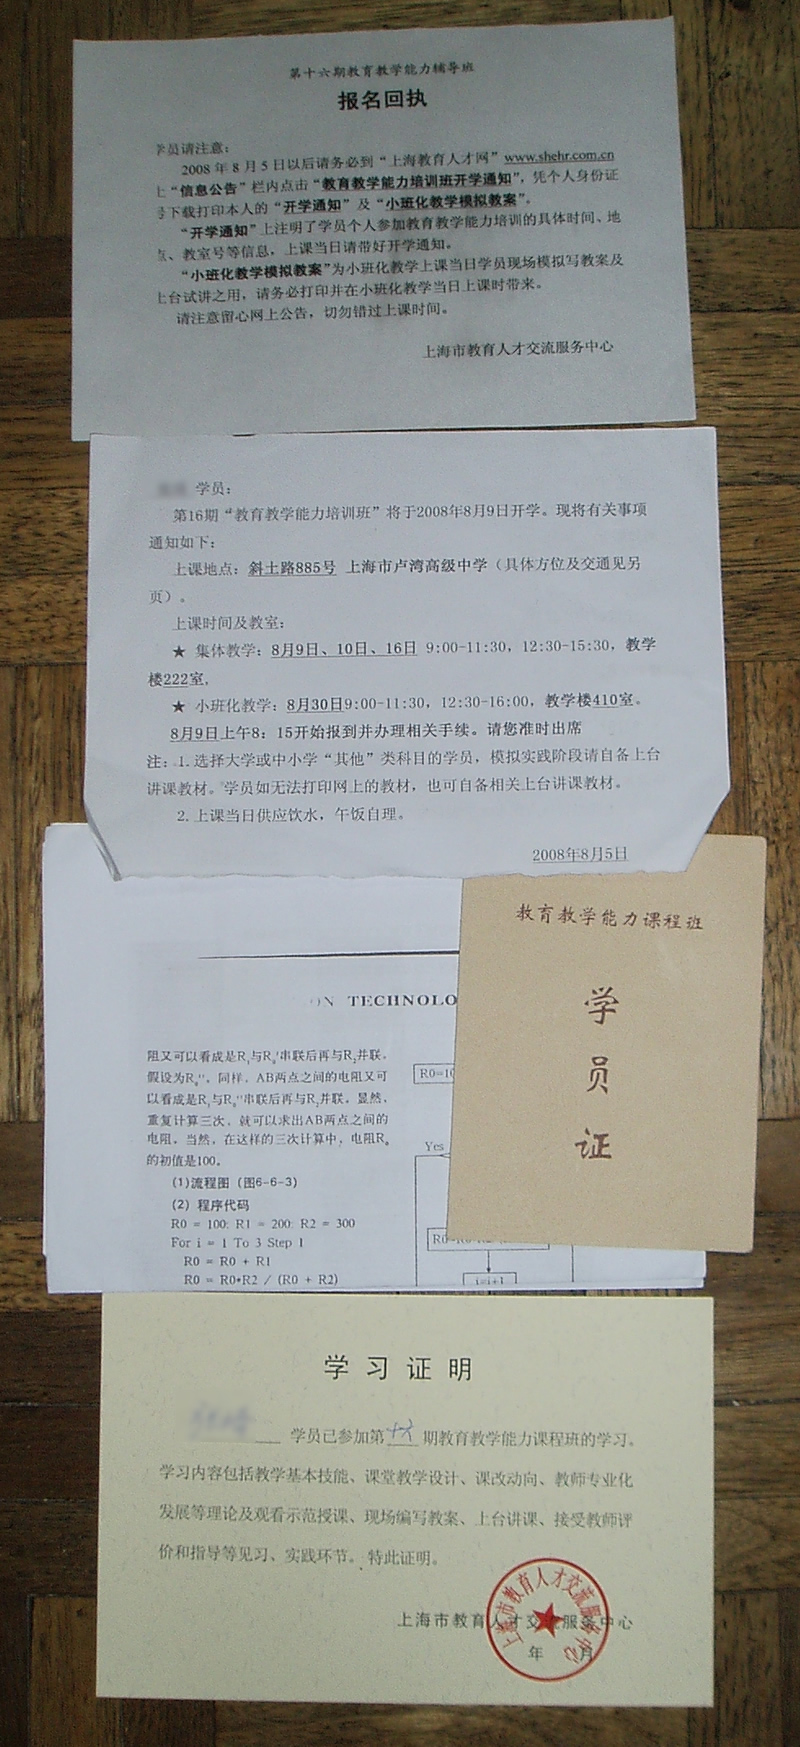 第十六期教育教学能力辅导班
报名回执
学员请注意：
2008 年 8 月 5 日以后请务必到“上海教育人才网” www.shehr.com.cn
上“信息公告”栏内点击“教育教学能力培训班开学通知”，凭个人身份证
号下载打印本人的“开学通知”及“小班化教学模拟教案”。
“开学通知”上注明了学员个人参加教育教学能力培训的具体时间、地
点、教室号等信息，上课当日请带好开学通知。
“小班化教学模拟教案”为小班化教学上课当日学员现场模拟写教案及
上台试讲之用，请务必打印并在小班化教学当日上课时带来。
请注意留心网上公告，切勿错过上课时间。
上海市教育人才交流服务中心
学员：
第16期“教育教学能力培训班”将于2008年8月9日开学。现将有关事项
通知如下：
上课地点：斜土路885号 上海市卢湾高级中学（具体方位及交通见另
页）。
上课时间及教室：
★ 集体教学：8月9日、10日、16日 9:00-11:30，12:30-15:30，教学
楼222室，
★ 小班化教学：8月30日9:00-11:30，12:30-16:00，教学楼410室。
8月9日上午8：15开始报到并办理相关手续。请您准时出席
注：1. 选择大学或中小学“其他”类科目的学员，模拟实践阶段请自备上台
讲课教材。学员如无法打印网上的教材，也可自备相关上台讲课教材。
2. 上课当日供应饮水，午饭自理。
2008年8月5日
教育教学能力课程班
学
员
证
ON TECHNOLO
阻又可以看成是R1与R0'串联后再与R2并联，
假设为R0''，同样，AB两点之间的电阻又可
以看成是R1与R0''串联后再与R2并联。显然，
重复计算三次，就可以求出AB两点之间的
电阻。当然，在这样的三次计算中，电阻R0
的初值是100。
(1)流程图（图6-6-3）
(2) 程序代码
R0 = 100: R1 = 200: R2 = 300
For i = 1 To 3 Step 1
R0 = R0 + R1
R0 = R0*R2 / (R0 + R2)
R0=10
Yes
i=i+1
学习证明
学员已参加第十六期教育教学能力课程班的学习。
学习内容包括教学基本技能、课堂教学设计、课改动向、教师专业化
发展等理论及观看示范授课、现场编写教案、上台讲课、接受教师评
价和指导等见习、实践环节。特此证明。
上海市教育人才交流服务中心
年 月
上海市教育人才交流服务中心